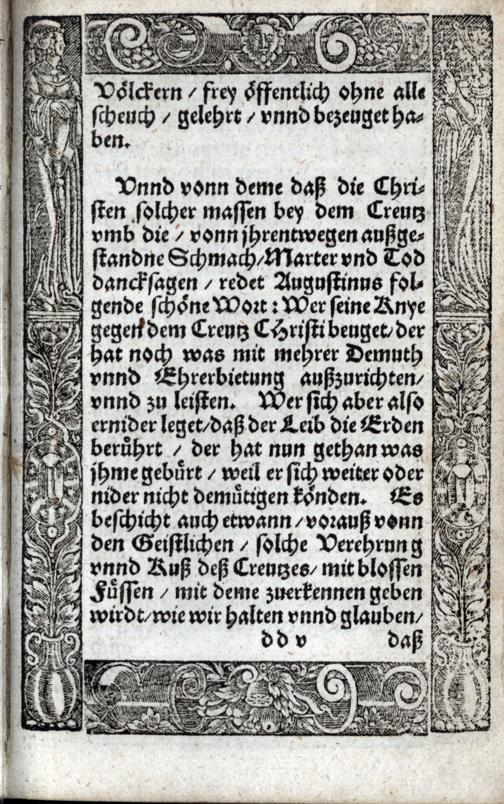 Völckern / frey öffentlich ohne alle
scheuch / gelehrt / vnnd bezeuget ha-
ben.
Vnnd vonn deme daß die Chri-
sten solcher massen bey dem Creutz
vmb die / vonn jhrentwegen außge-
standne Schmach / Marter vnd Tod
dancksagen / redet Augustinus fol-
gende schöne Wort : Wer seine Knye
gegen dem Creutz Christi beuget / der
hat noch was mit mehrer Demuth
vnnd Ehrerbietung außzurichten /
vnnd zu leisten. Wer sich aber also
ernider leget / daß der Leib die Erden
berührt / der hat nun gethan was
jhme gebürt / weil er sich weiter oder
nider nicht demütigen könden. Es
beschicht auch etwann / vorauß vonn
den Geistlichen / solche Verehrung
vnnd Kuß deß Creutzes / mit blossen
Füssen / mit deme zuerkennen geben
wirdt / wie wir halten vnnd glauben /
dd v daß